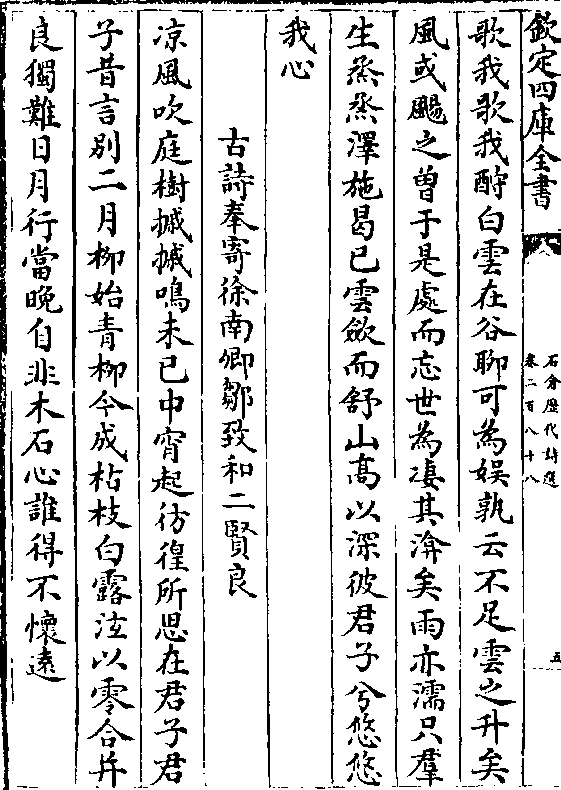 欽定四庫全書
石倉歷代詩選
卷二百八十八
五
歌我歌我酹白雲在谷聊可為娛孰云不足雲之升矣
風或颺之曽于是處而忘世為凄其渰矣雨亦濡只羣
生烝烝澤施曷已雲斂而舒山髙以深彼君子兮悠悠
我心
古詩奉寄徐南卿鄒致和二賢良
凉風吹庭樹摵摵鳴未已中宵起彷徨所思在君子君
子昔言别二月柳始青柳今成枯枝白露泫以零合并
良獨難日月行當晚自非木石心誰得不懷遠